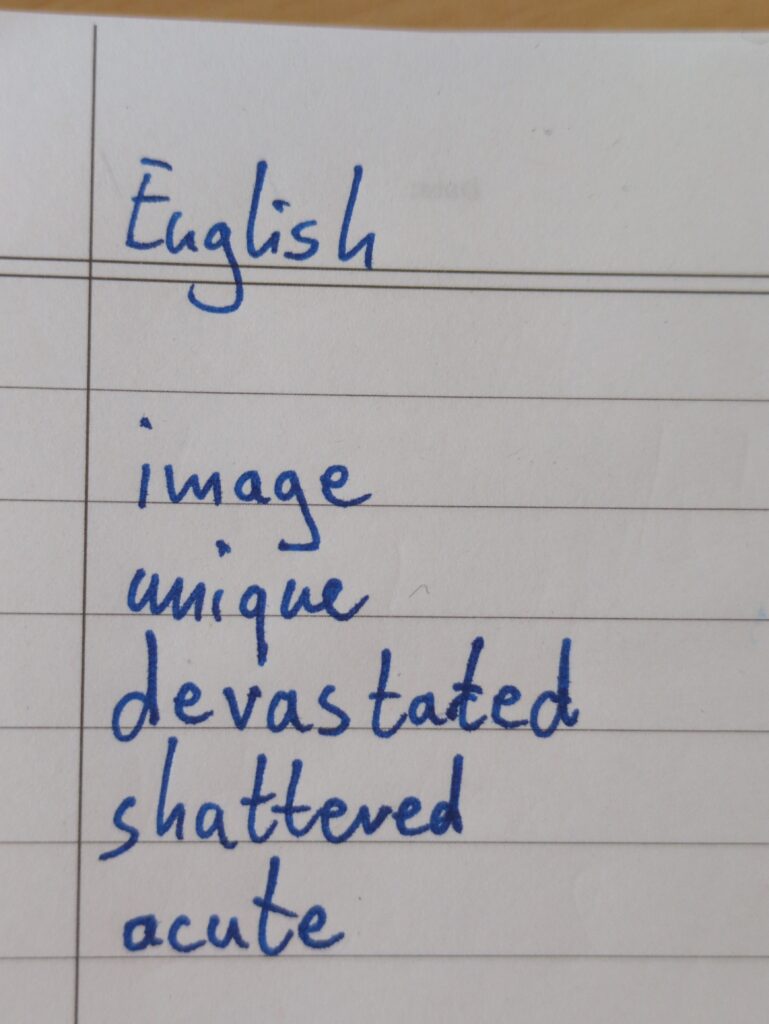 English
image
unique
devastated
shattered
acute